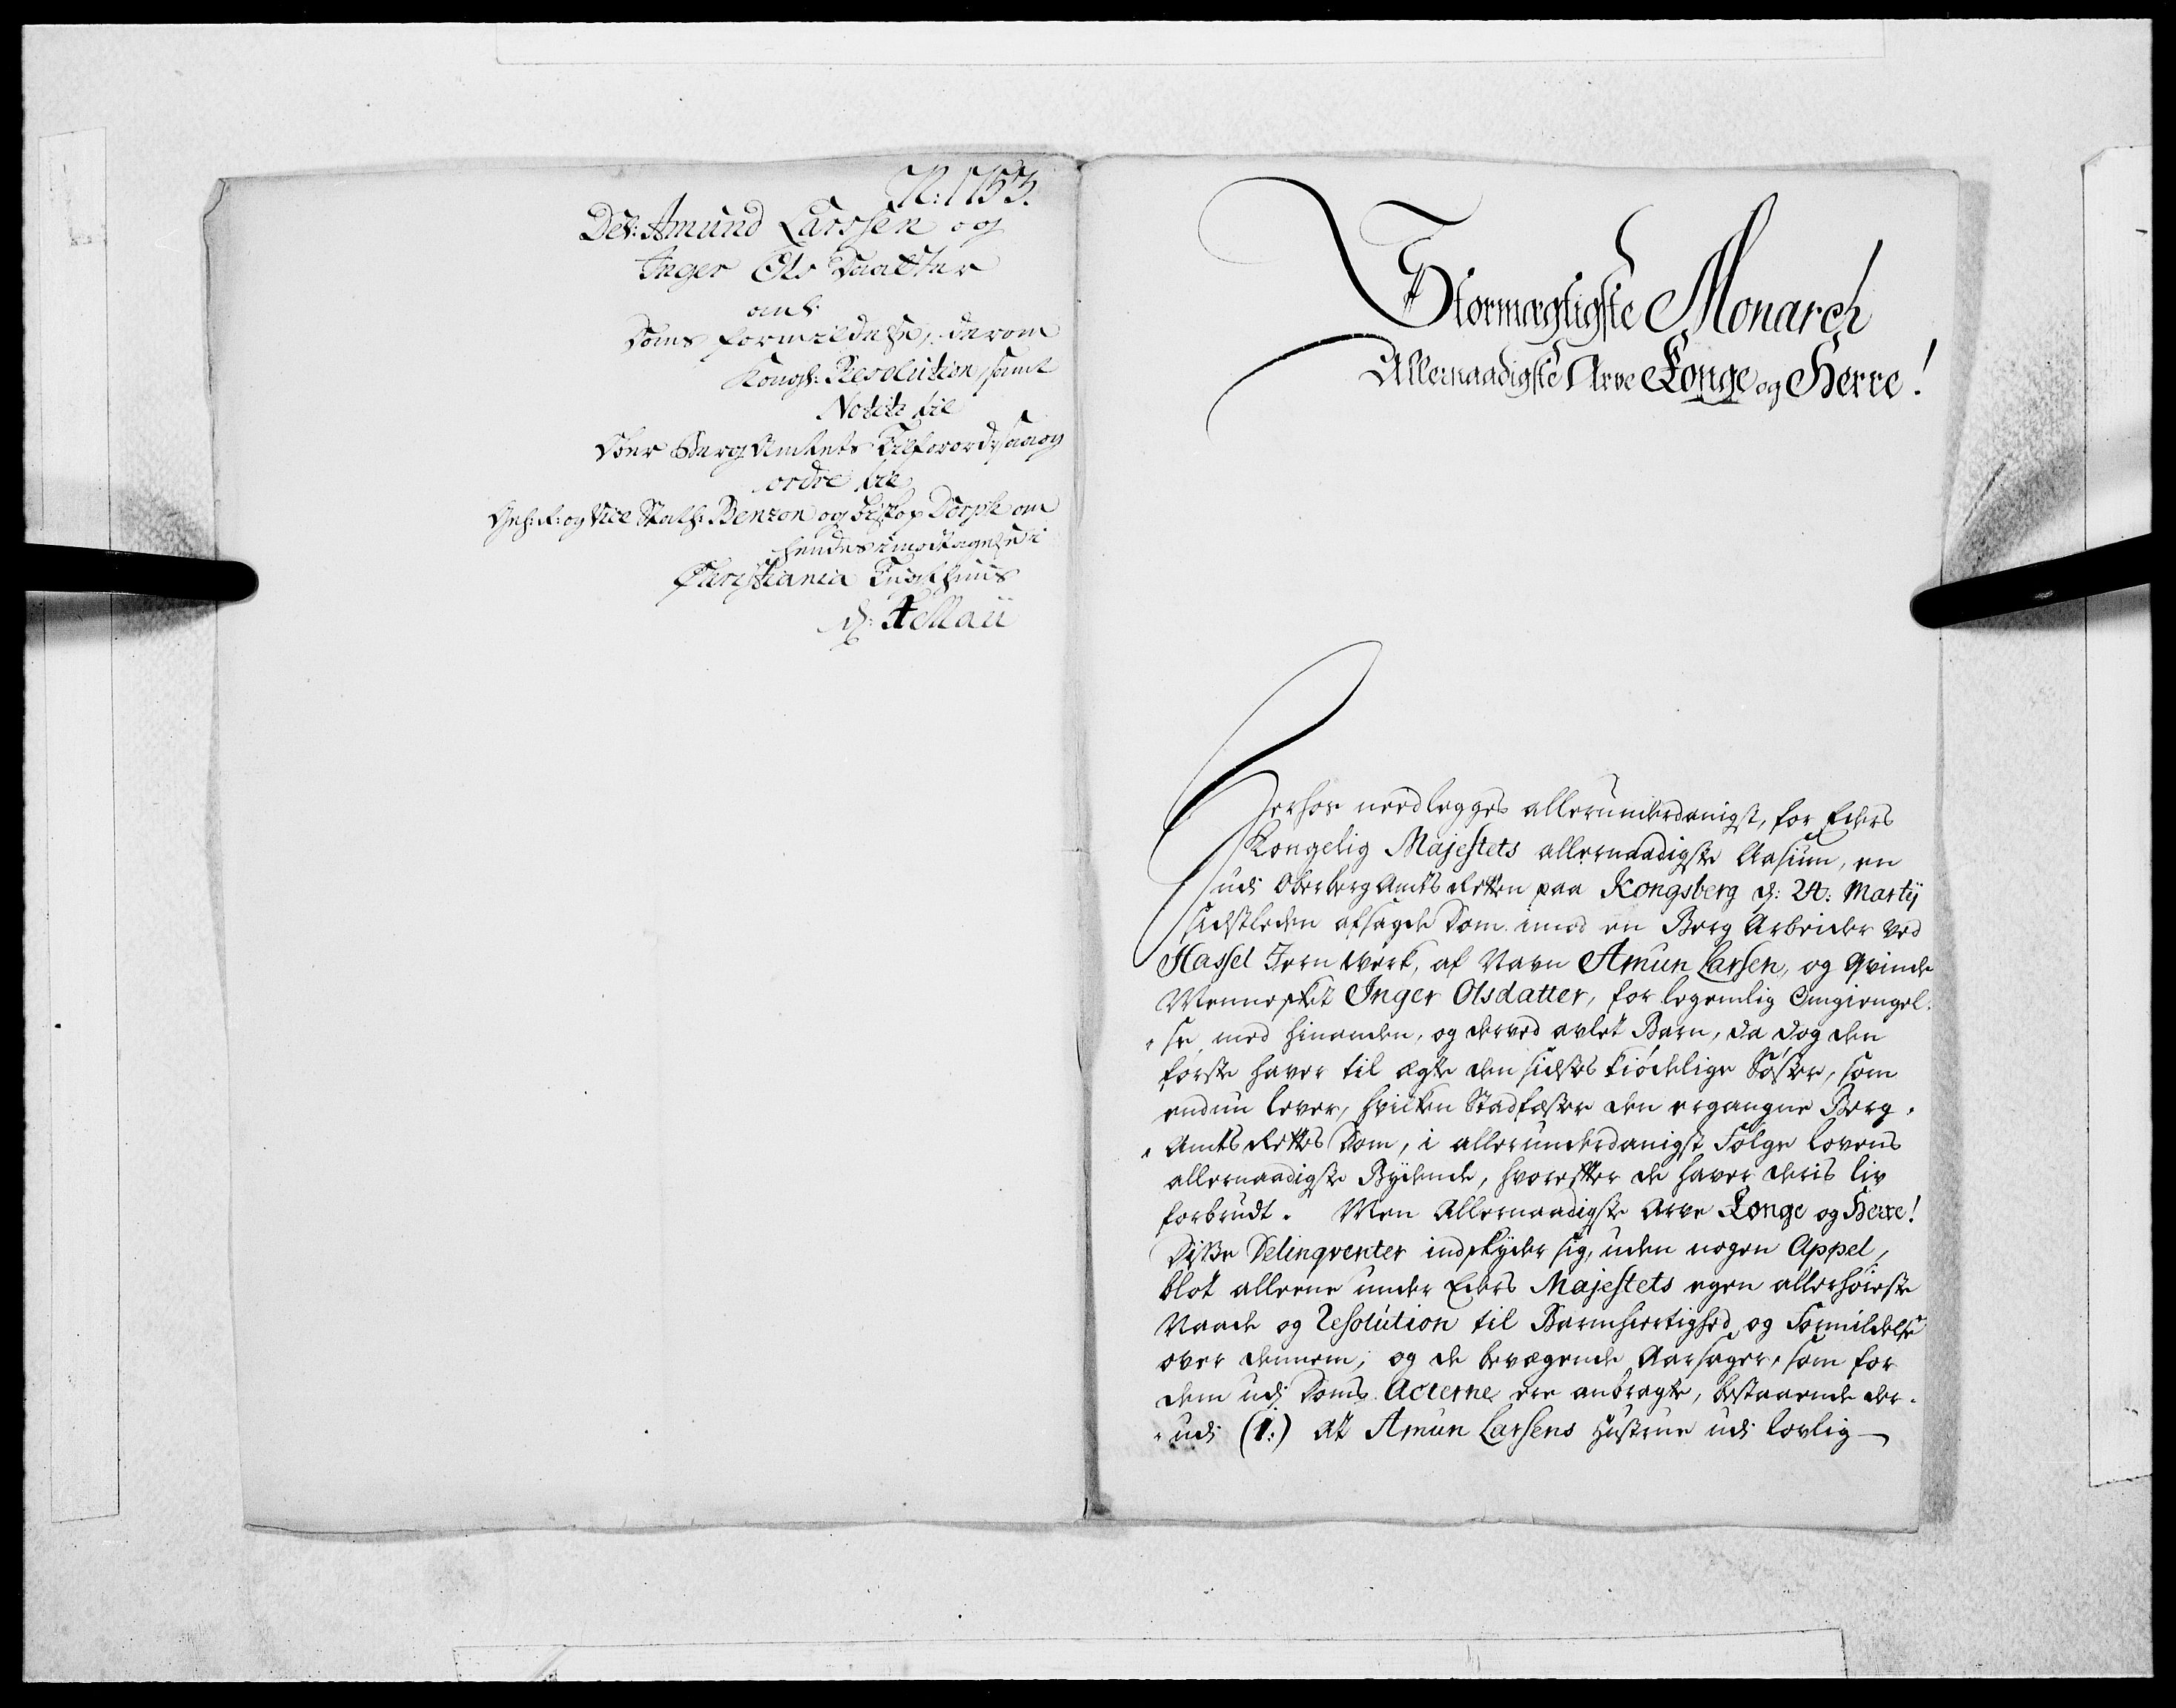 N: 1153.
Del: Amund Larssen og
Inger Ols Daatter
anl:
Doms formildelse, derom
Kongl: Resolution, samt
Notitz til
Ober Berg Amtets Tilforordn: saa og
ordre til
Geh: R: og Vice Stath: Benzon og Biskop Dorph om
hendes imodtagelse i
Christiania Tugthuus
d: 4 Maii
Stormægtigste Monarch
Allernaadigste Arve Konge og Herre!
Herhos nedlegges allerunderdanigst, for Eders
Kongelig Majestets allernaadigste Aasiun, en
udi OberbergAmts Retten paa Kongsberg d: 24: Martij
sidstleden afsagde Dom imod en Berg Arbeider ved
Hassel Jern Werk, af Navn Amun Larsen, og Qvinde
Mennesket Inger Olsdatter, for legemlig Omgiengel¬
„se med hinanden, og derved avlet Barn, da dog den
første haver til ægte den sidstes kiødelige Søster, som
endnu lever, hvilken Stadfæster den ergangne Berg¬
„Amts Rettes Dom, i allerunderdanigst Følge lovens
allernaadigste Bydende, hvorefter de haver deris liv
forbrudt. Men Allernaadigste Arve Konge og Herre!
Disse Delinqventer indskyder sig, uden nogen Appel,
blot alleene under Eders Majestets egen allerhøieste
Naade og Resolution til Barmhiertighed og Formildelse
over dennem, og de bevægende Aarsager, som for
dem udj Doms Acterne ere anbragte, bestaaende der¬
„udj (1:) At Amun Larsens Hustrue udi lovlig